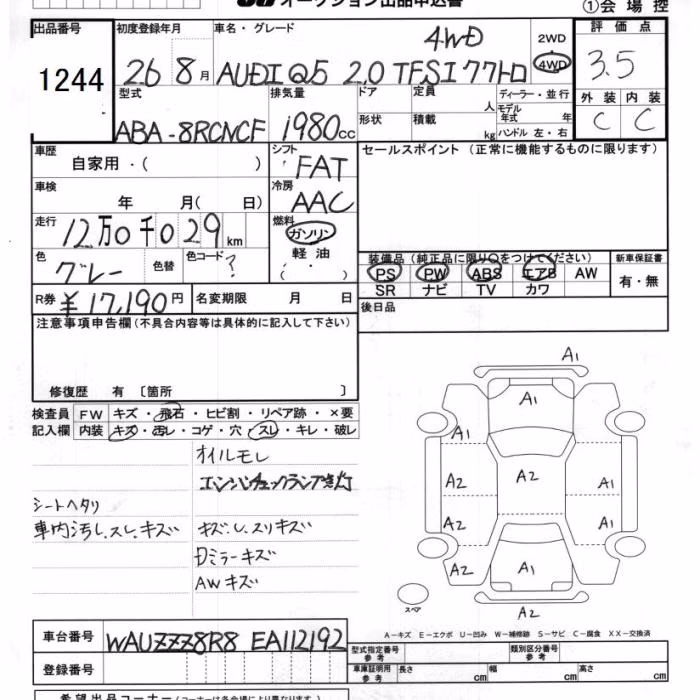 オークション出品申込書
①会場控
出品番号
1244
初度登録年月
26 8月
車名・グレード
4WD
AUDI Q5 2.0 TFSI クワトロ
2WD
4WD
評価点
3.5
外装 内装
C C
型式
ABA-8RCNCF
排気量
1980cc
ドア
形状
定員
人
積載
kg
ディーラー・並行
モデル年式 年
ハンドル 左・右
車歴
自家用・( )
シフト
FAT
セールスポイント (正常に機能するものに限ります)
車検
年 月( 日)
冷房
AAC
走行
12万0千029km
燃料
ガソリン
軽油
( )
色
グレー
色替
色コード
?
装備品 (純正品に限り○をつけてください)
PS PW ABS エアB AW
SR ナビ TV カワ
新車保証書
有・無
R券
¥17,190円
名変期限 月 日
後日品
注意事項申告欄(不具合内容等は具体的に記入して下さい)
修復歴 有 〔箇所 〕
検査員記入欄
FW キズ・飛石・ヒビ割・リペア跡・×要
内装 キズ・汚レ・コゲ・穴・スレ・キレ・破レ
オイルモレ
エンジンチェックランプ点灯
シートヘタリ
車内汚し、スレ、キズ
キズ・U・スリキズ
Dミラーキズ
AWキズ
A1
A1
A1
A2
A2
A1
A2
A1
A2
A1
A2
A2
スペア
A-キズ E-エクボ U-凹み W-補修跡 S-サビ C-腐食 XX-交換済
車台番号
WAUZZZ8R8 EA112192
登録番号
型式指定番号
参考
類別区分番号
参考
車庫証明用
参考
長さ cm
幅 cm
高さ cm
希望出品コーナー(コーナーは各会場により異なります)